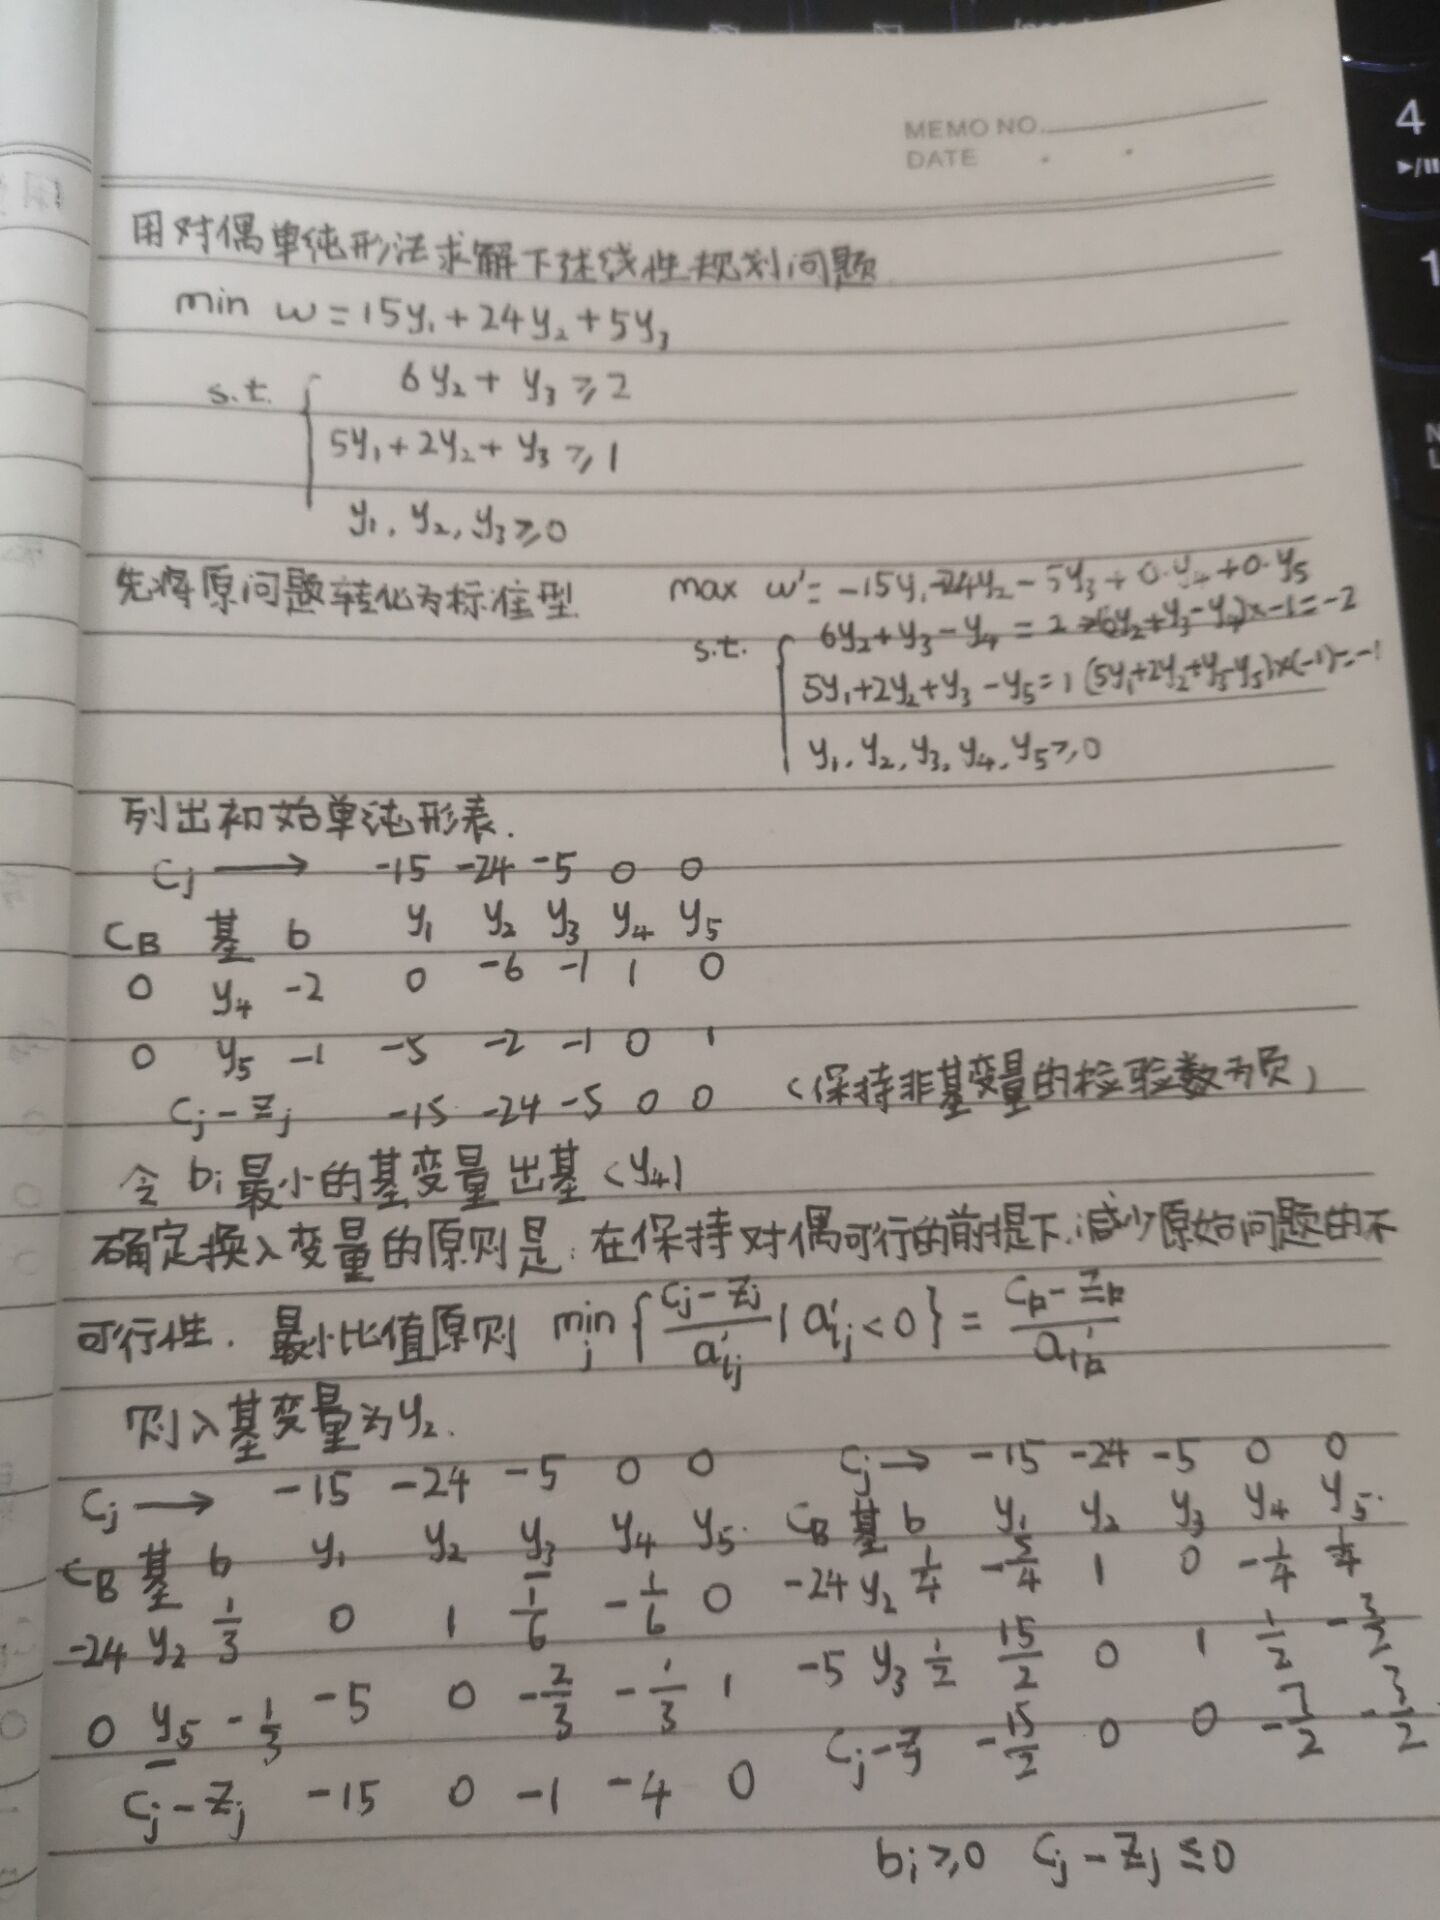 MEMO NO.
DATE
用对偶单纯形法求解下述线性规划问题
min w=15y₁+24y₂+5y₃
s.t. { 6y₂+y₃≥2
5y₁+2y₂+y₃≥1
y₁,y₂,y₃≥0
先将原问题转化为标准型 max w'=-15y₁-24y₂-5y₃+0·y₄+0·y₅
s.t. { 6y₂+y₃-y₄=2 →(6y₂+y₃-y₄)×-1=-2
5y₁+2y₂+y₃-y₅=1 (5y₁+2y₂+y₃-y₅)×(-1)=-1
y₁,y₂,y₃,y₄,y₅≥0
列出初始单纯形表.
Cj → -15 -24 -5 0 0
CB 基 b y₁ y₂ y₃ y₄ y₅
0 y₄ -2 0 -6 -1 1 0
0 y₅ -1 -5 -2 -1 0 1
Cj-Zj -15 -24 -5 0 0 (保持非基变量的检验数为负)
令 bi最小的基变量出基(y₄)
确定换入变量的原则是:在保持对偶可行的前提下,减少原始问题的不
可行性. 最小比值原则 min j { (cj-zj)/a'ij | a'ij<0 } =
则入基变量为y₂.
Cj → -15 -24 -5 0 0
CB 基 b y₁ y₂ y₃ y₄ y₅.
-24 y₂ 1/3 0 1 1/6 -1/6 0
0 y₅ -1/3 -5 0 -2/3 -1/3 1
Cj-Zj -15 0 -1 -4 0
Cj → -15 -24 -5 0 0
CB 基 b y₁ y₂ y₃ y₄ y₅.
-24 y₂ 1/4 -5/4 1 0 -1/4 1/4
-5 y₃ 1/2 15/2 0 1 1/2 -3/2
Cj-Zj -15/2 0 0 -7/2 -3/2
bi≥0 Cj-Zj≤0
4
1